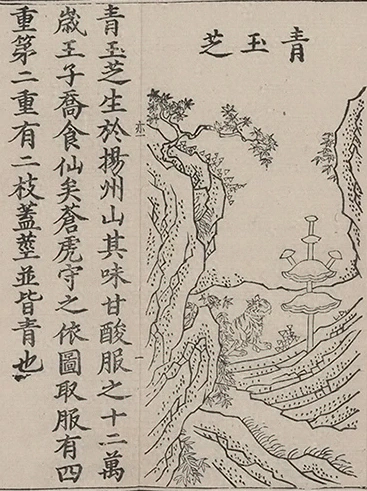 青玉芝
青玉芝生於揚州山其味甘酸服之十二萬
歲王子喬食仙矣蒼虎守之依圖取服有四
重第二重有二枝蓋莖並皆青也